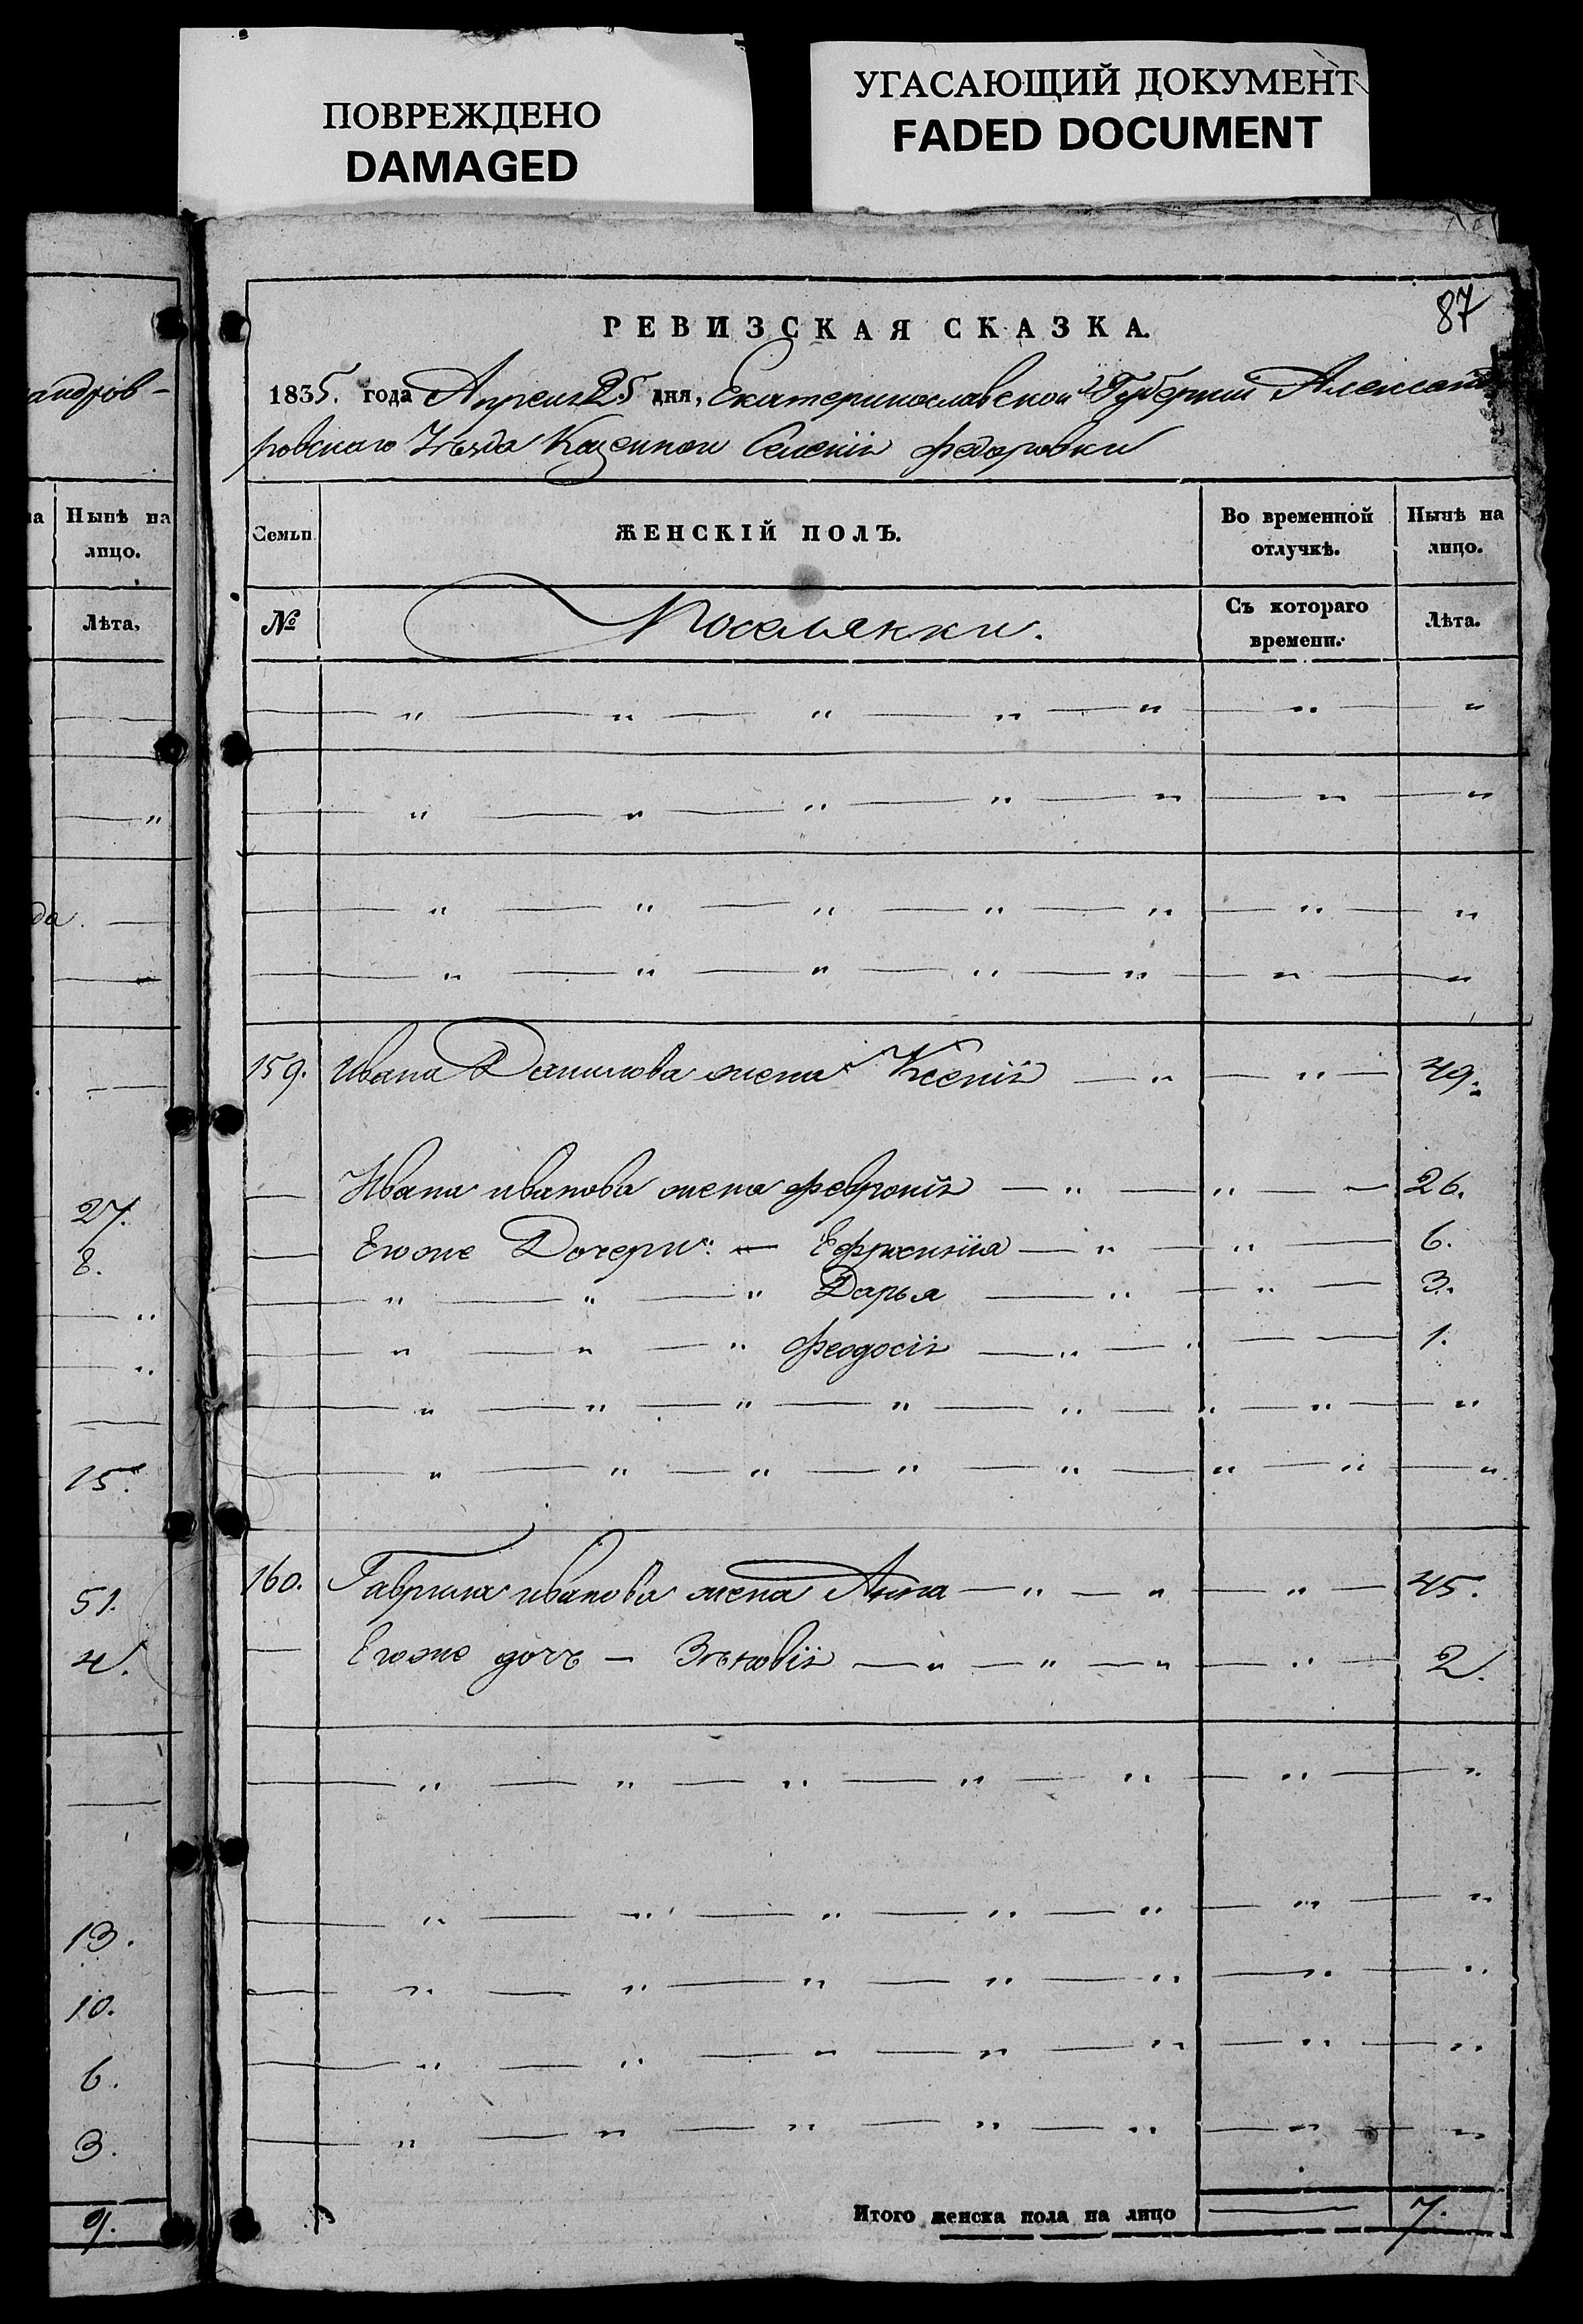 ПОВРЕЖДЕНО
DAMAGED
УГАСАЮЩИЙ ДОКУМЕНТ
FADED DOCUMENT
андров-
Нынѣ на
лицо.
Лѣта,
27.
8.
15.
51.
4.
13.
10.
6.
3.
9.
87
РЕВИЗСКАЯ СКАЗКА.
1835. года Апреля 25 дня, Екатеринославской Губернии Александ
ровскаго Уѣзда Казенной Селенія Федоровки
Семьи ЖЕНСКІЙ ПОЛЪ. Во временной отлучкѣ. Нынѣ на лицо.
№ Поселянки. Съ котораго времени. Лѣта.
159. Ивана Данилова жена Ксенія — „ — „ — 49.
— Ивана иванова жена Февронія — „ — „ — — 26.
— Егоже Дочери: — Ефросинія — „ — „ — 6.
— „ — „ — „ Дарья — „ — „ — 3.
— „ — „ — „ Феодосія — „ — „ — — 1.
160. Гаврила иванова жена Анна — „ — „ — „ — 45.
— Егоже дочь — Зѣновія — „ — „ — „ — „ — 2.
Итого женска пола на лицо — 7.